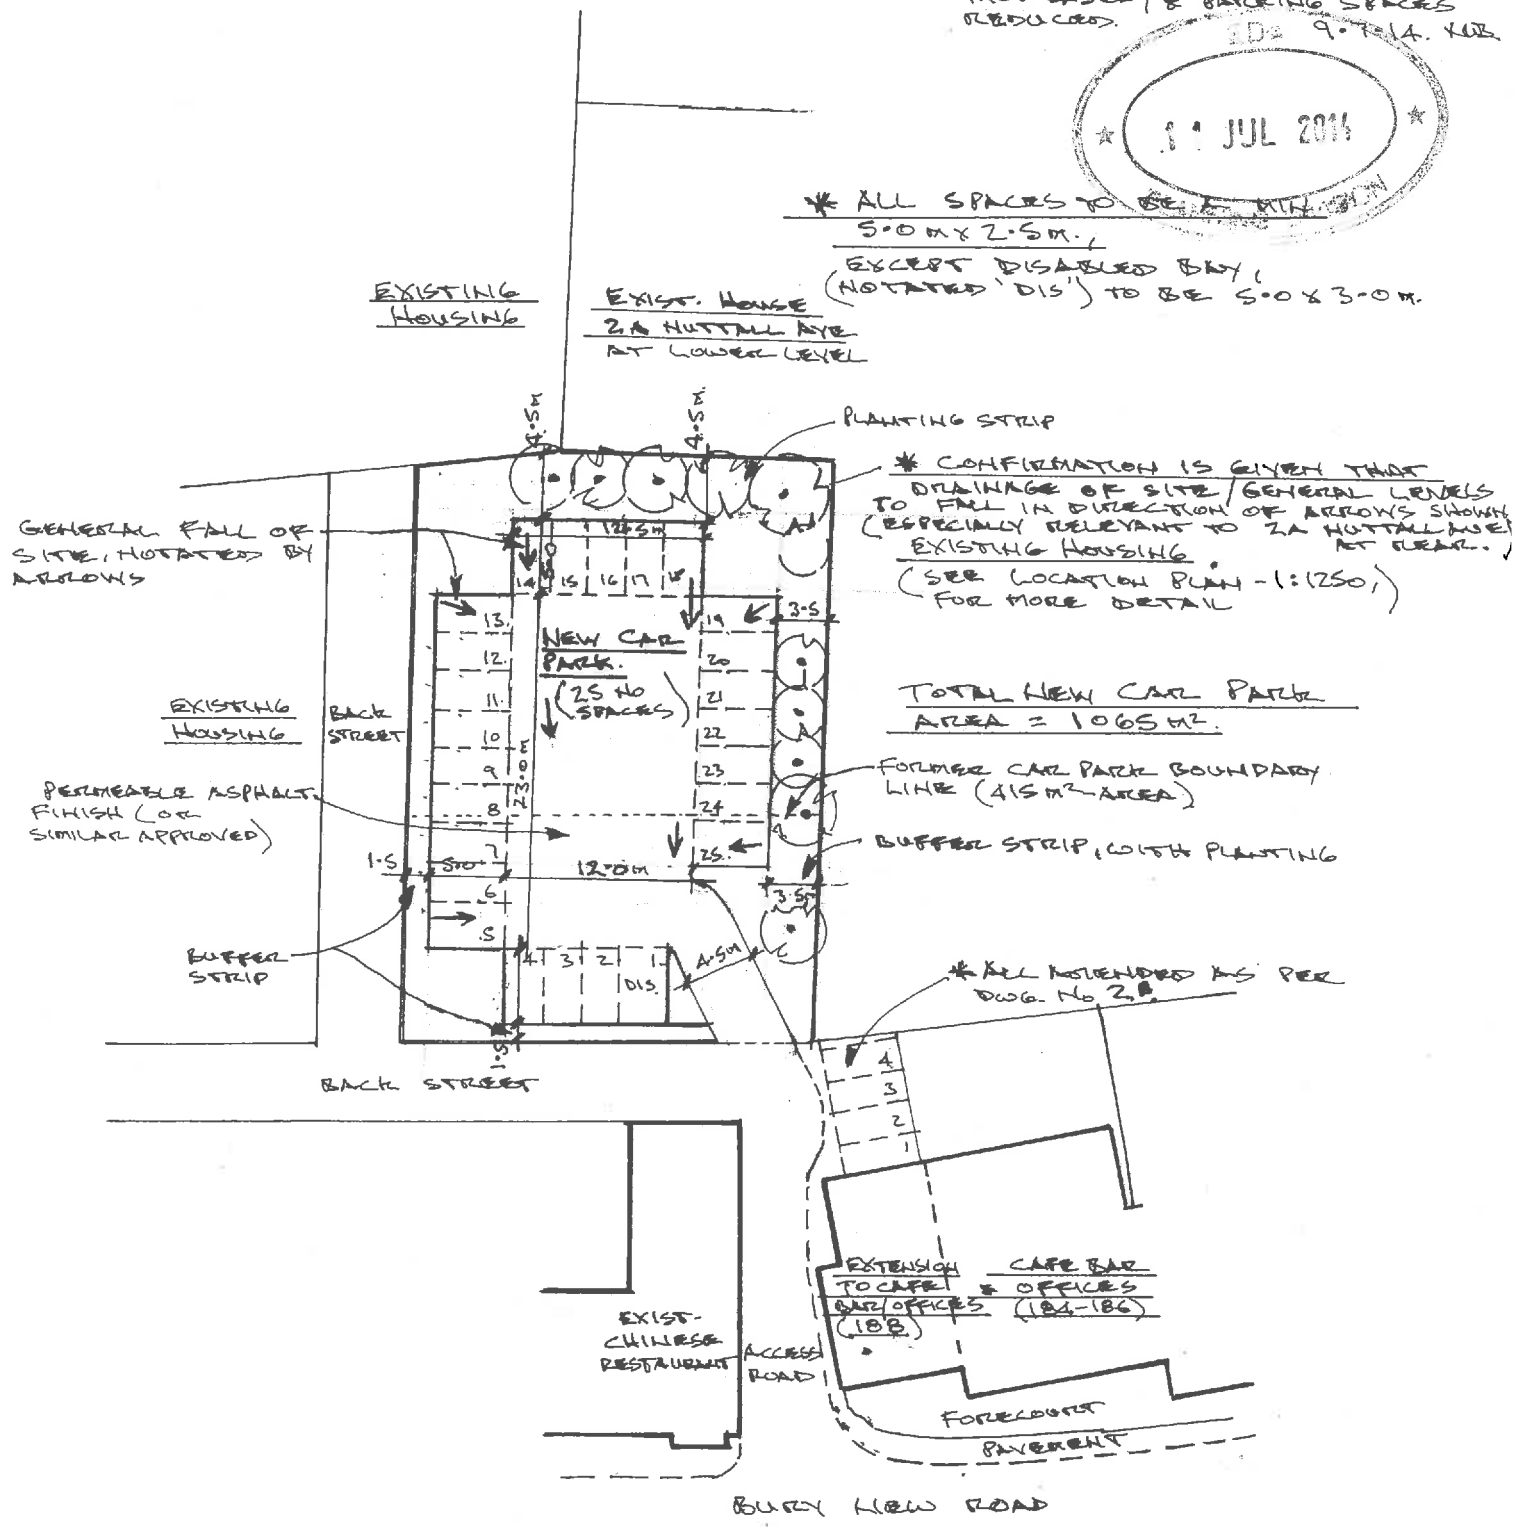 & PARKING SPACES
REDUCED.
9·7·14.
11 JUL 2014
* ALL SPACES TO BE A MIN.
5·0 M X 2·5 M.,
EXCEPT DISABLED BAY,
(NOTATED 'DIS') TO BE 5·0 X 3·0 M.
EXISTING
HOUSING
EXIST. HOUSE
2A NUTTALL AVE
AT LOWER LEVEL
4·5M
4·5M.
PLANTING STRIP
* CONFIRMATION IS GIVEN THAT
DRAINAGE OF SITE/GENERAL LEVELS
TO FALL IN DIRECTION OF ARROWS SHOWN
(ESPECIALLY RELEVANT TO 2A NUTTALL AVE/
EXISTING HOUSING AT REAR.)
(SEE LOCATION PLAN - 1:1250,
FOR MORE DETAIL)
GENERAL FALL OF
SITE, NOTATED BY
ARROWS
12·5M
5·0
14 15 16 17 18
13.
12.
11.
10
9
8
7
6
5
19
20
21
22
23
24
25.
3·5
NEW CAR
PARK.
(25 NO
SPACES)
23·0M
EXISTING
HOUSING
BACK
STREET
TOTAL NEW CAR PARK
AREA = 1065 M².
FORMER CAR PARK BOUNDARY
LINE (415 M² AREA)
PERMEABLE ASPHALT
FINISH (OR
SIMILAR APPROVED)
BUFFER STRIP, WITH PLANTING
1·5
5·0
12·0M
3·5
BUFFER
STRIP
4 3 2 1
DIS.
4·5M
* ALL AMENDED AS PER
DWG. No 2
1·5
BACK STREET
4
3
2
1
EXTENSION
TO CAFE
BAR/OFFICES
(188)
CAFE BAR
& OFFICES
(184-186)
EXIST.
CHINESE
RESTAURANT
ACCESS
ROAD
FORECOURT
PAVEMENT
BURY NEW ROAD